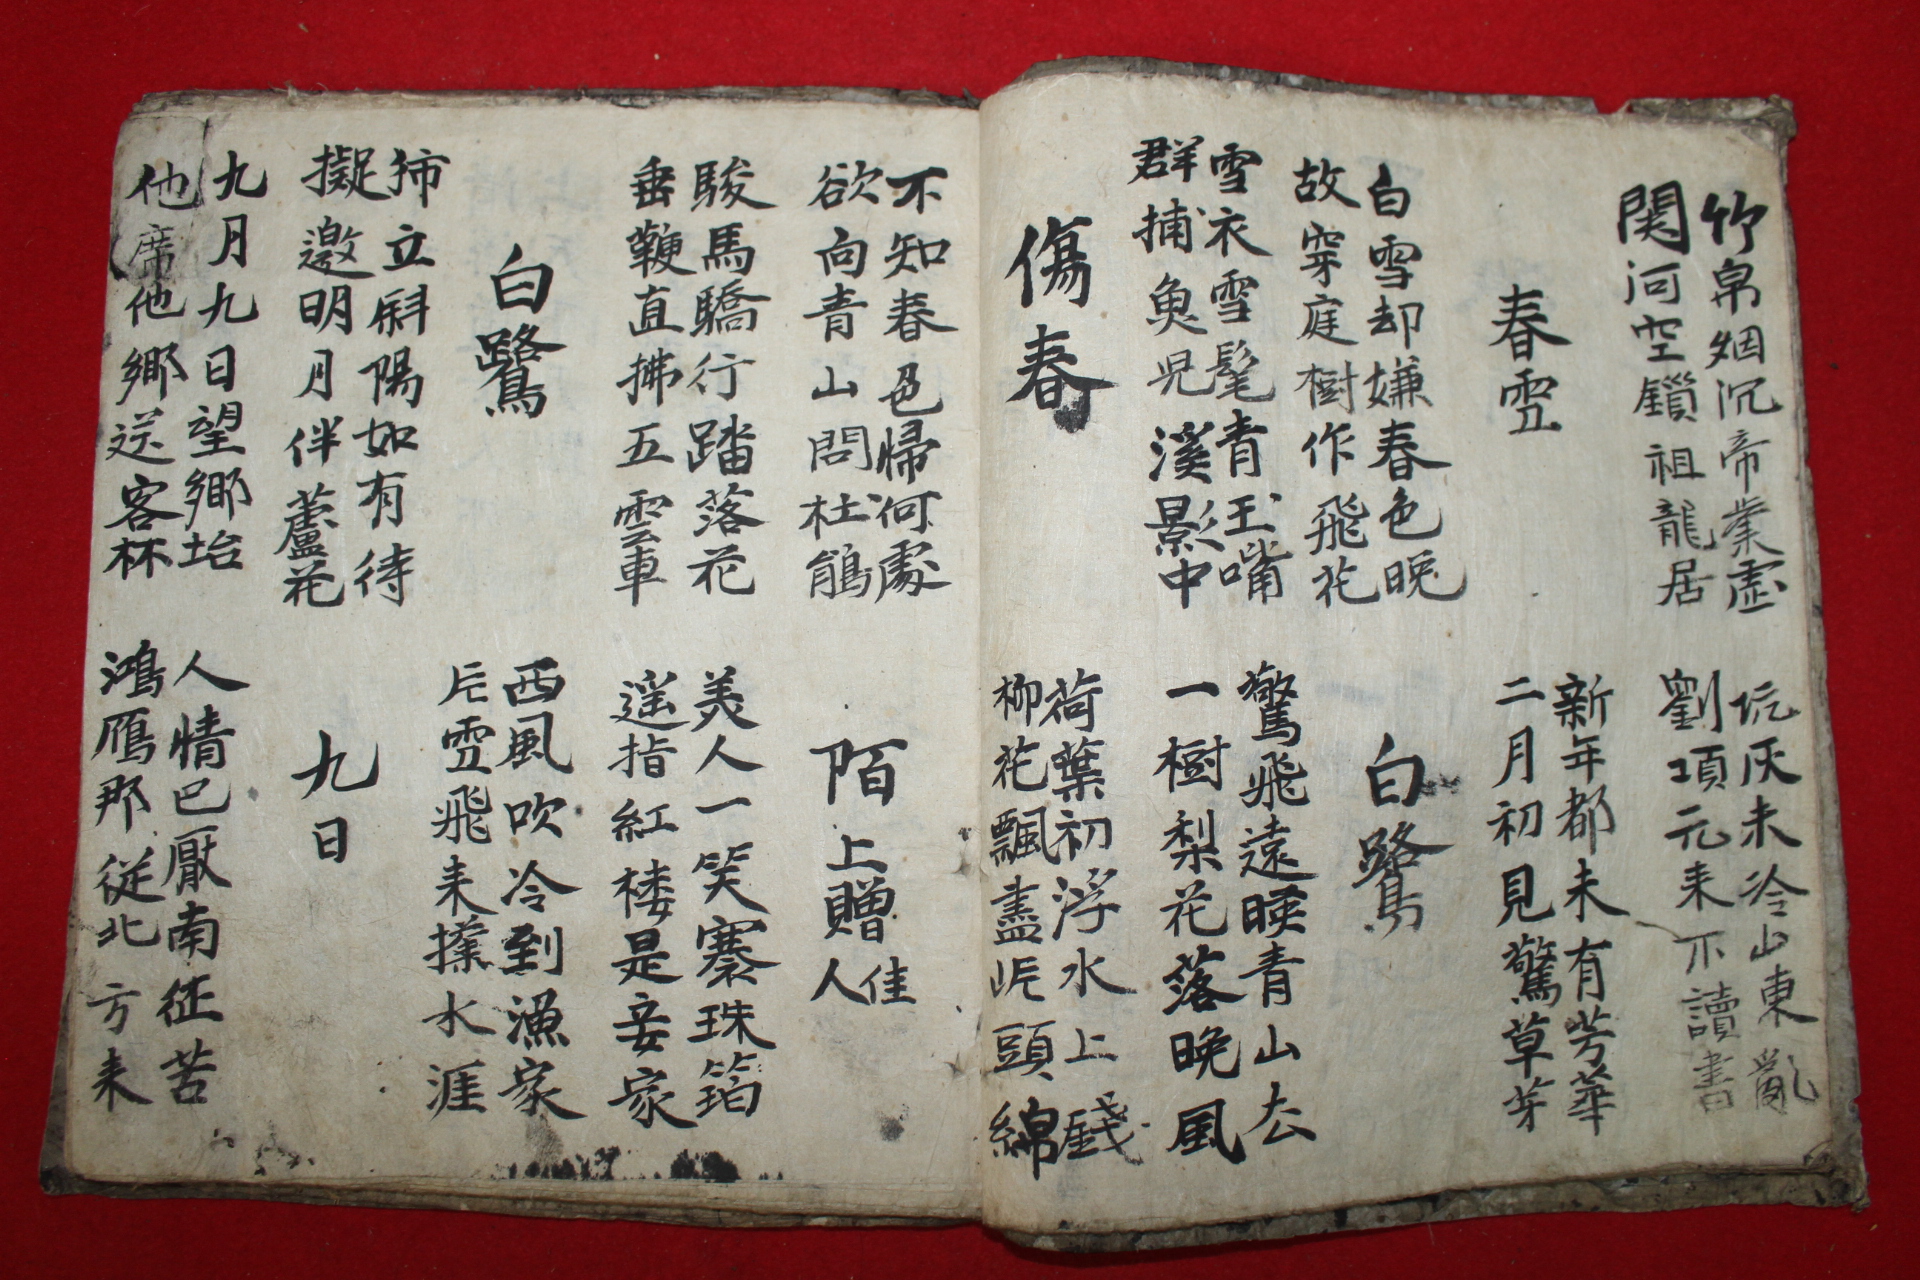 竹帛烟沉帝業虛
関河空鎖祖龍居
坑灰未冷山東亂
劉項元来不讀書
春雪
新年都未有芳華
二月初見驚草芽
白雪却嫌春色晚
故穿庭樹作飛花
白鷺
雪衣雪髦青玉嘴
群捕魚兒溪影中
驚飛遠暎青山去
一樹梨花落晚風
傷春
荷葉初浮水上錢
柳花飄盡岸頭綿
不知春色歸何處
欲向青山問杜鵑
陌上贈佳人
駿馬驕行踏落花
垂鞭直拂五雲車
美人一笑褰珠箔
遥指紅楼是妾家
白鷺
西風吹冷到漁家
片雪飛来水涯
立斜陽如有待
擬邀明月伴蘆花
九日
九月九日望鄉坮
他席他鄉送客杯
人情已厭南征苦
鴻雁那從北方来